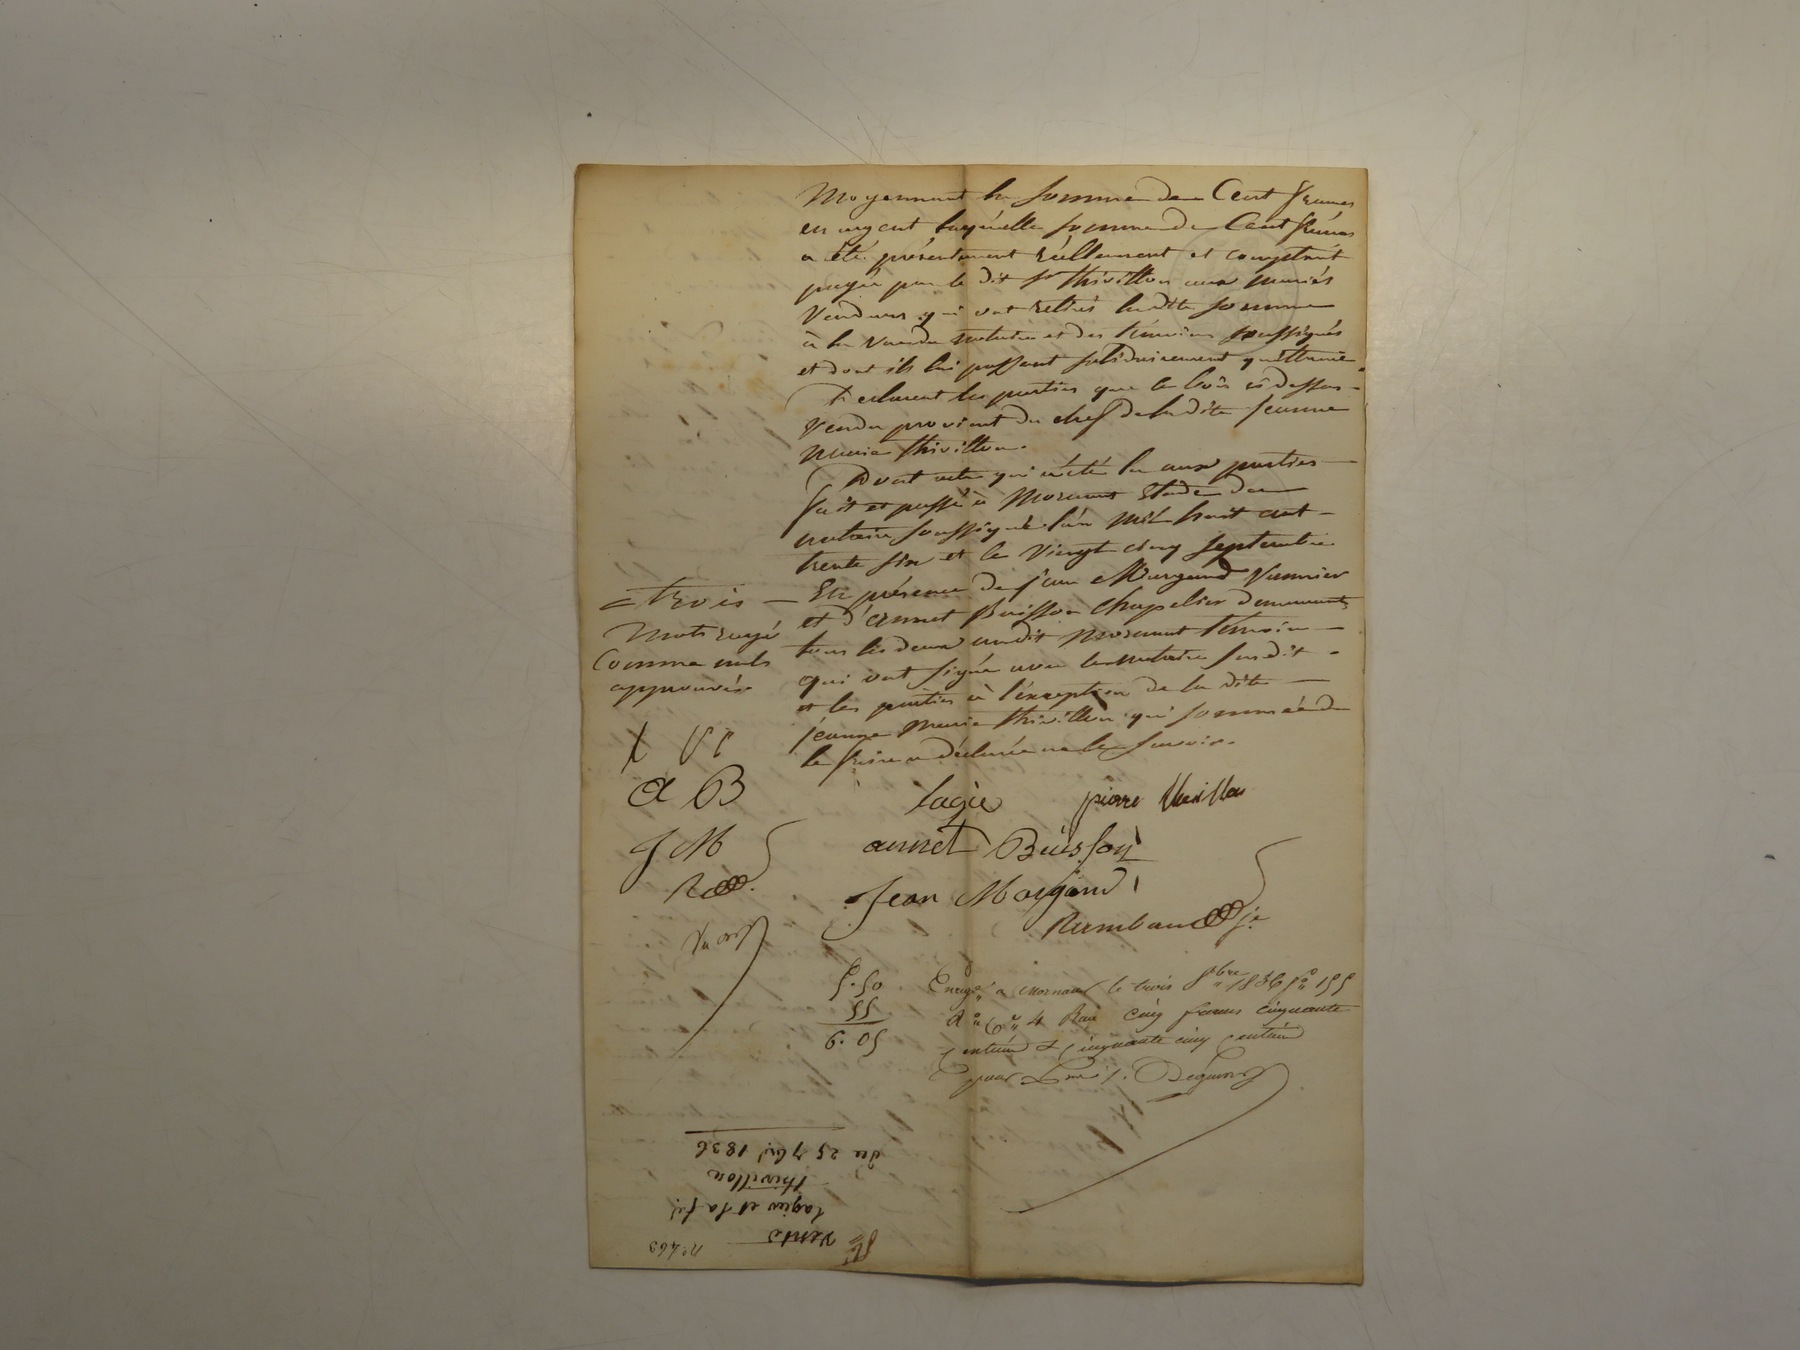 Moyennant la somme de Cent francs
en argent laquelle somme de Cent francs
a été présentement réellement et comptant
payée par le dit Sr thivillon aux mariés
Vendeurs qui ont retiré la dite somme
à la vue du notaire et des témoins soussignés
et dont ils lui passent solidairement quittance
Déclarent les parties que le bois ci dessus
Vendu provient du chef de la dite Jeanne
Marie thivillon.
Dont acte qui a été lu aux parties
fait et passé à Mornant Etude du
notaire soussigné l'an mil huit cent
trente six et le vingt cinq septembre
En présence de Jean Margand Vannier
et d'annet Buisson chapelier demeurants
tous les deux audit Mornant témoins
qui ont signé avec le notaire susdit
et les parties à l'exception de la dite
jeanne Marie thivillon qui sommée de
le faire a déclarée ne le savoir.
= trois
mots rayé
Comme nuls
approuvés
A B
J M
lagie pierre thivillon
annet Buisson
Jean Margand
Rambaud je
5.50
55
6.05
Enregé a Mornant le trois 8bre 1836 fo 155
Ro Co 4 Reçu cinq francs cinquante
centimes & cinquante cinq centimes
pour
No 463
Vente
lagier et sa fe.
thivillon
du 25 7bre 1836